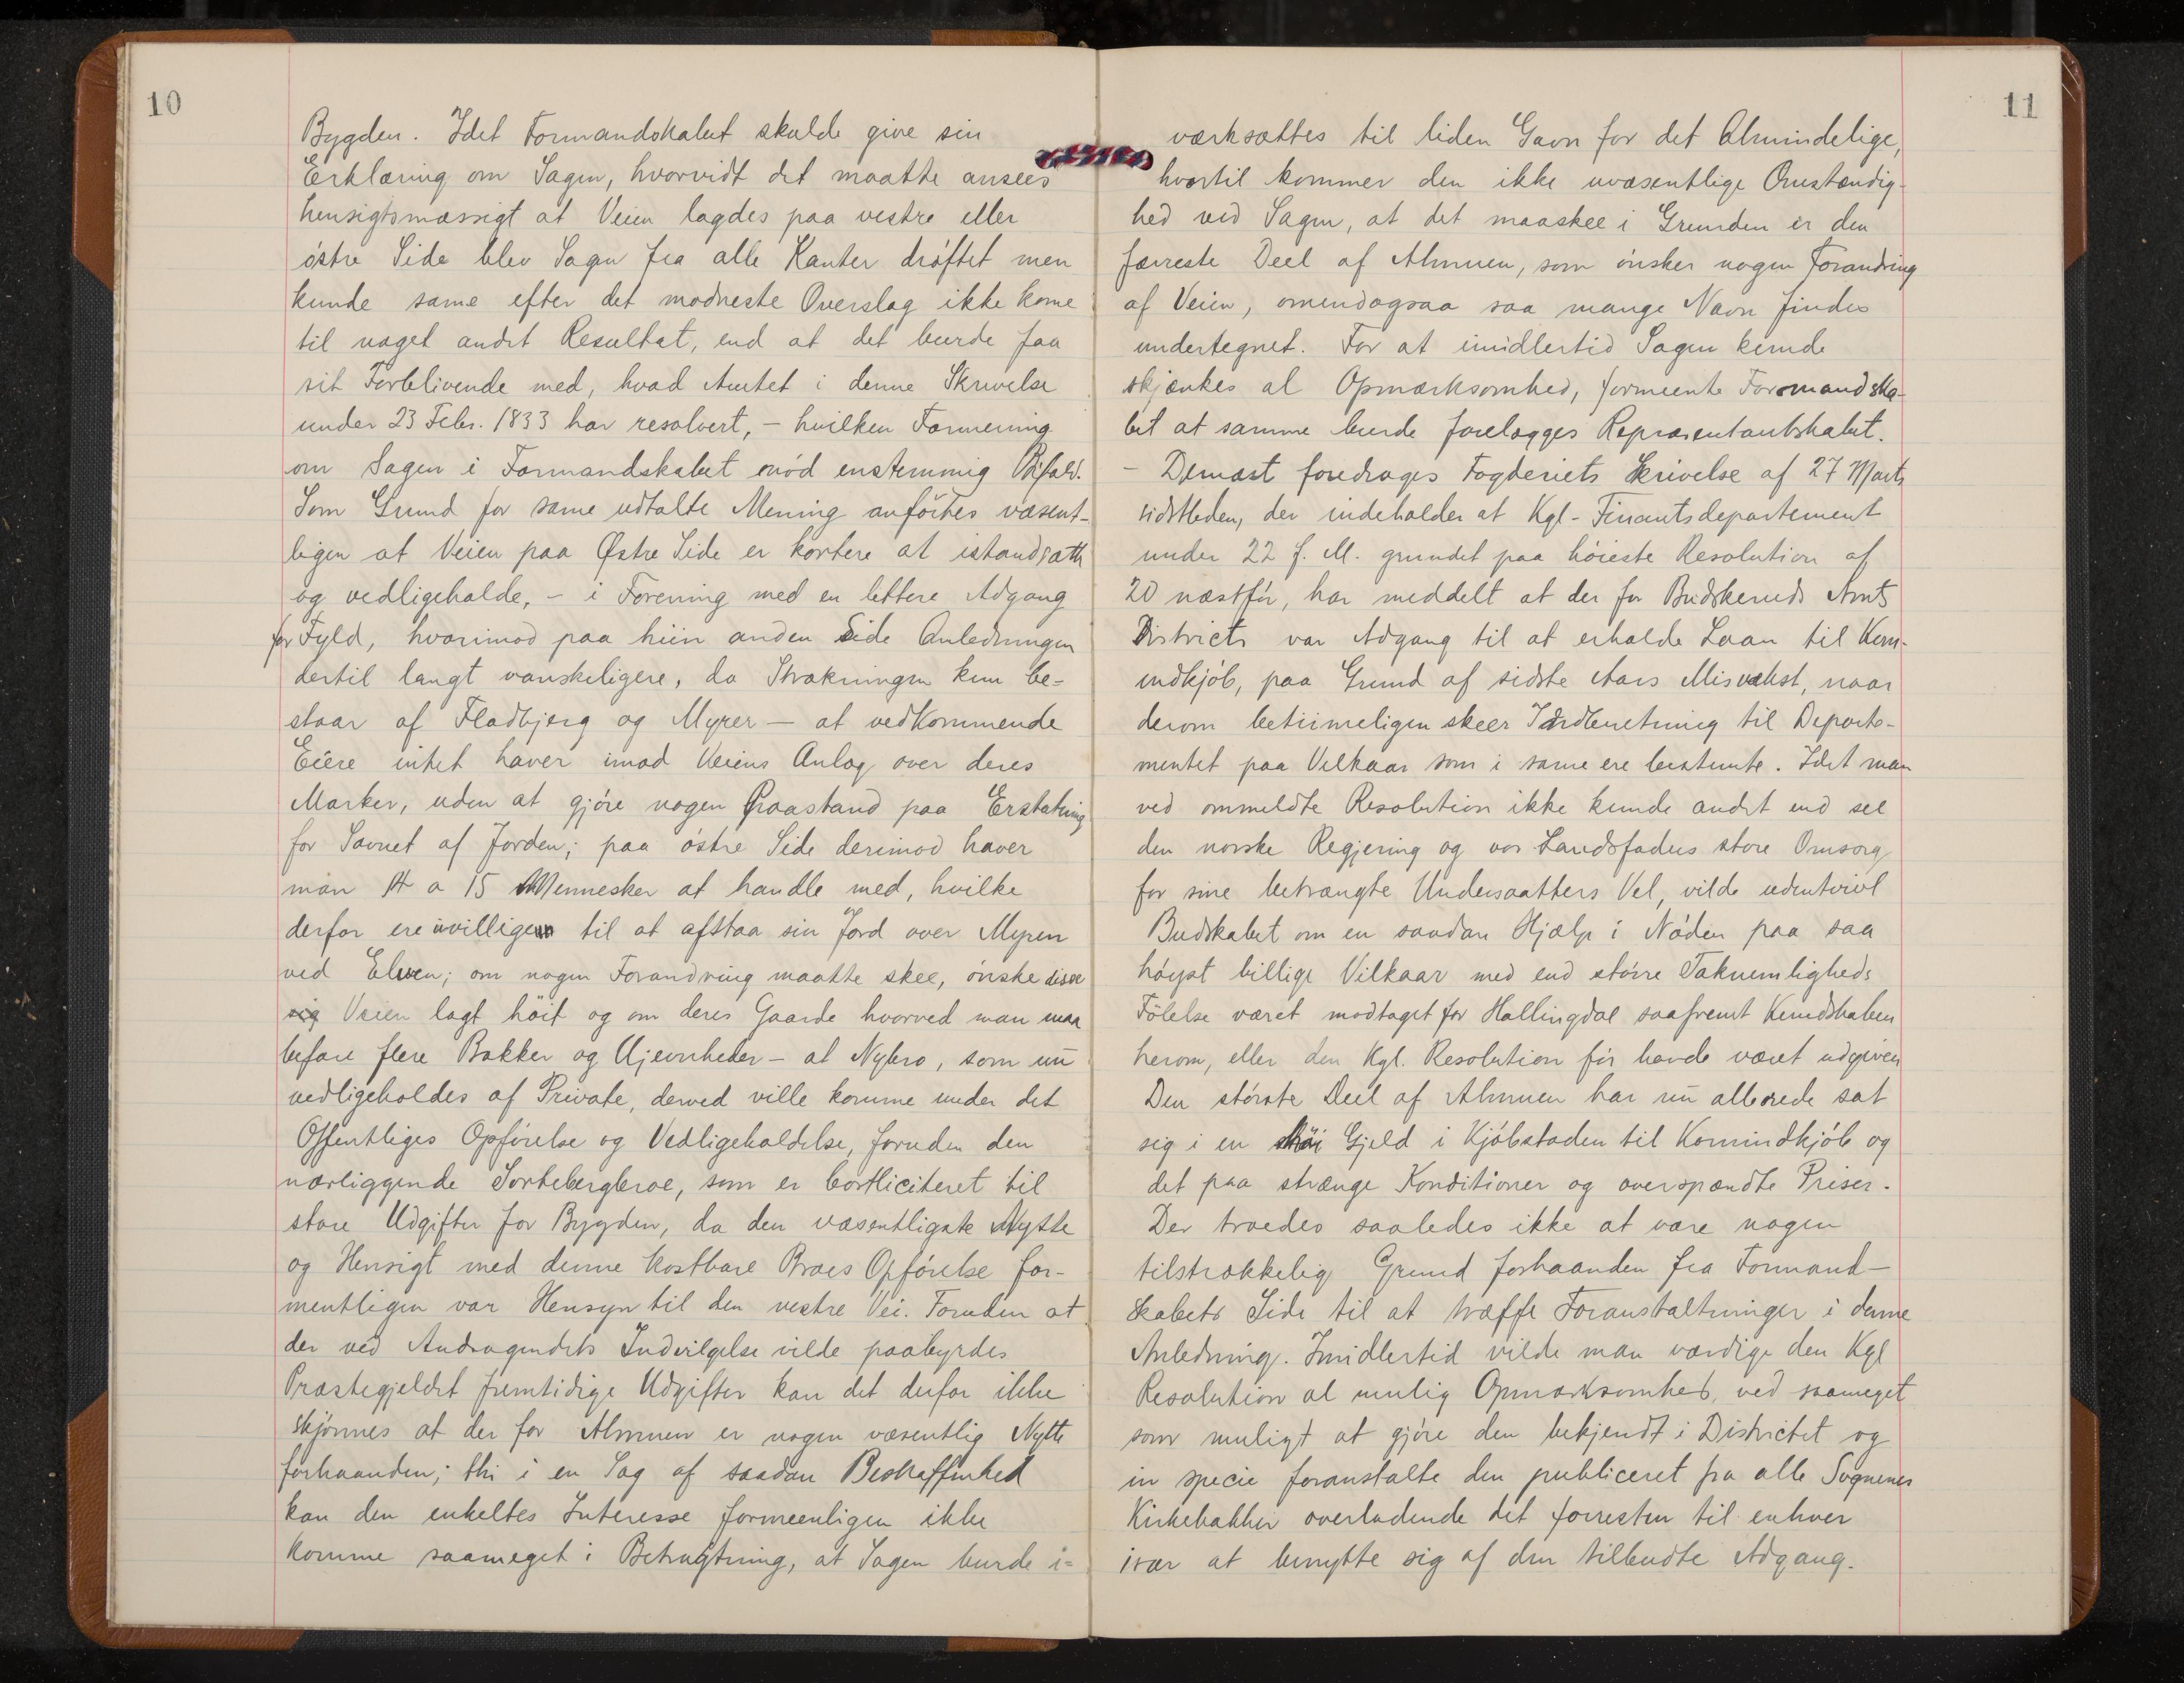 10
Bygden. Idet Formandskabet skulde give sin
Erklæring om Sagen, hvorvidt det maatte ansees
hensigtsmæssigt at Veien lagdes paa vestre eller
östre Side blev Sagen fra alle Kanter dröftet men
kunde same efter det modneste Overslag ikke kome
til noget andet Resultat, end at det burde faa
sit Forblivende med, hvad Amtet i denne Skrivelse
under 23 Febr. 1833 har resolvert, – hvilken Formening
om Sagen i Formandskabet nöd enstemmig Bifald.
Som Grund for same udtalte Mening anförtes væsent-
ligen at Veien paa Østre Side er kortere at istandsætte
og vedligeholde, – i Forening med en lettere Adgang
for Fyld, hvorimod paa hiin anden Side Anledningen
dertil langt vanskeligere, da Strækningen kun be-
staar af Fladbjerg og Myrer – at vedkommende
Eiere intet haver imod Veiens Anlæg over deres
Marker, uden at gjöre nogen Paastand paa Erstatning
for Savnet af Jorden; paa östre Side derimod haver
man 14 a 15 Mennesker at handle med, hvilke
derfor ere uvilligen til at afstaa sin Jord over Myren
ved Elven; om nogen Forandring maatte skee, önske disse
sig Veien lagt höit og om deres Gaarde hvorved man maa
befare flere Bakker og Ujevnheder – at Nybro, som nū
vedligeholdes af Private, derved ville komme under det
Offentliges Opförelse og Vedligeholdelse, foruden den
nærliggende Sortebergbroe, som er bortliciteret til
store Udgifter for Bygden, da den væsentligste Nytte
og Hensigt med denne kostbare Broes Opförelse for-
mentligen var Hensyn til den vestre Vei. Foruden at
der ved Andragendets Indvilgelse vilde paabyrdes
Præstegjeldet fremtidige Udgifter kan det derfor ikke
skjönnes at der for Almuen er nogen væsentlig Nytte
forhaanden; thi i en Sag af saadan Beskaffenhed
kan den enkeltes Interesse formeenligen ikke
komme saameget i Betragtning, at Sagen burde i=
11
værksættes til liden Gavn for det Almindelige,
hvortil kommer den ikke uvæsentlige Omstændig-
hed ved Sagen, at det maaskee i Grunden er den
færreste Deel af Almuen, som önsker nogen Forandring
af Veien, omendogsaa saa mange Navn findes
undertegnet. For at imidlertid Sagen kunde
skjænkes al Opmærksomhed, formeente Formandska-
bet at samme burde forelægges Repræsentantskabet.
– Dernæst foredrages Fogderiets Skrivelse af 27 Marts
sidstleden, der indeholder at Kgl- Finantsdepartement
under 22 f. M. grundet paa höieste Resolution af
20 næstför, har meddelt at der for Budskeruds Amts
Districts var Adgang til at erholde Laan til Korn-
indkjöb, paa Grund af sidste Aars Misvækst, naar
derom betiimeligen skeer Indberetning til Departe-
mentet paa Vilkaar som i same ere bestemte. Idet man
ved ommeldte Resolution ikke kunde andet end see
den norske Regjering og vor Landsfaders store Omsorg
for sine betrængte Undersaatters Vel, vilde udentvivl
Budskabet om en saadan Hjælp i Nöden paa saa
höyst billige Vilkaar med end större Taknemligheds
Fölelse været modtaget for Hallingdal saafremt Kundskaben
herom, eller den Kgl. Resolution för havde været udgiven
Den störste Deel af Almuen har nū allerede sat
sig i en höi Gjeld i Kjöbstaden til Kornindkjöb og
det paa strænge Konditioner og overspændte Priser.
Der troedes saaledes ikke at være nogen
tilstrækkelig Grund forhaanden fra Formand-
skabets Side til at træffe Foranstaltninger i denne
Anledning. Imidlertid vilde man værdige den Kgl
Resolution al mulig Opmærksomhed, ved saameget
som muligt at gjöre den bekjendt i Districtet og
in specie foranstalte den publiceret fra alle Sognenes
Kirkebakker overladende det forresten til enhver
især at benytte sig af den tilbudte Adgang.